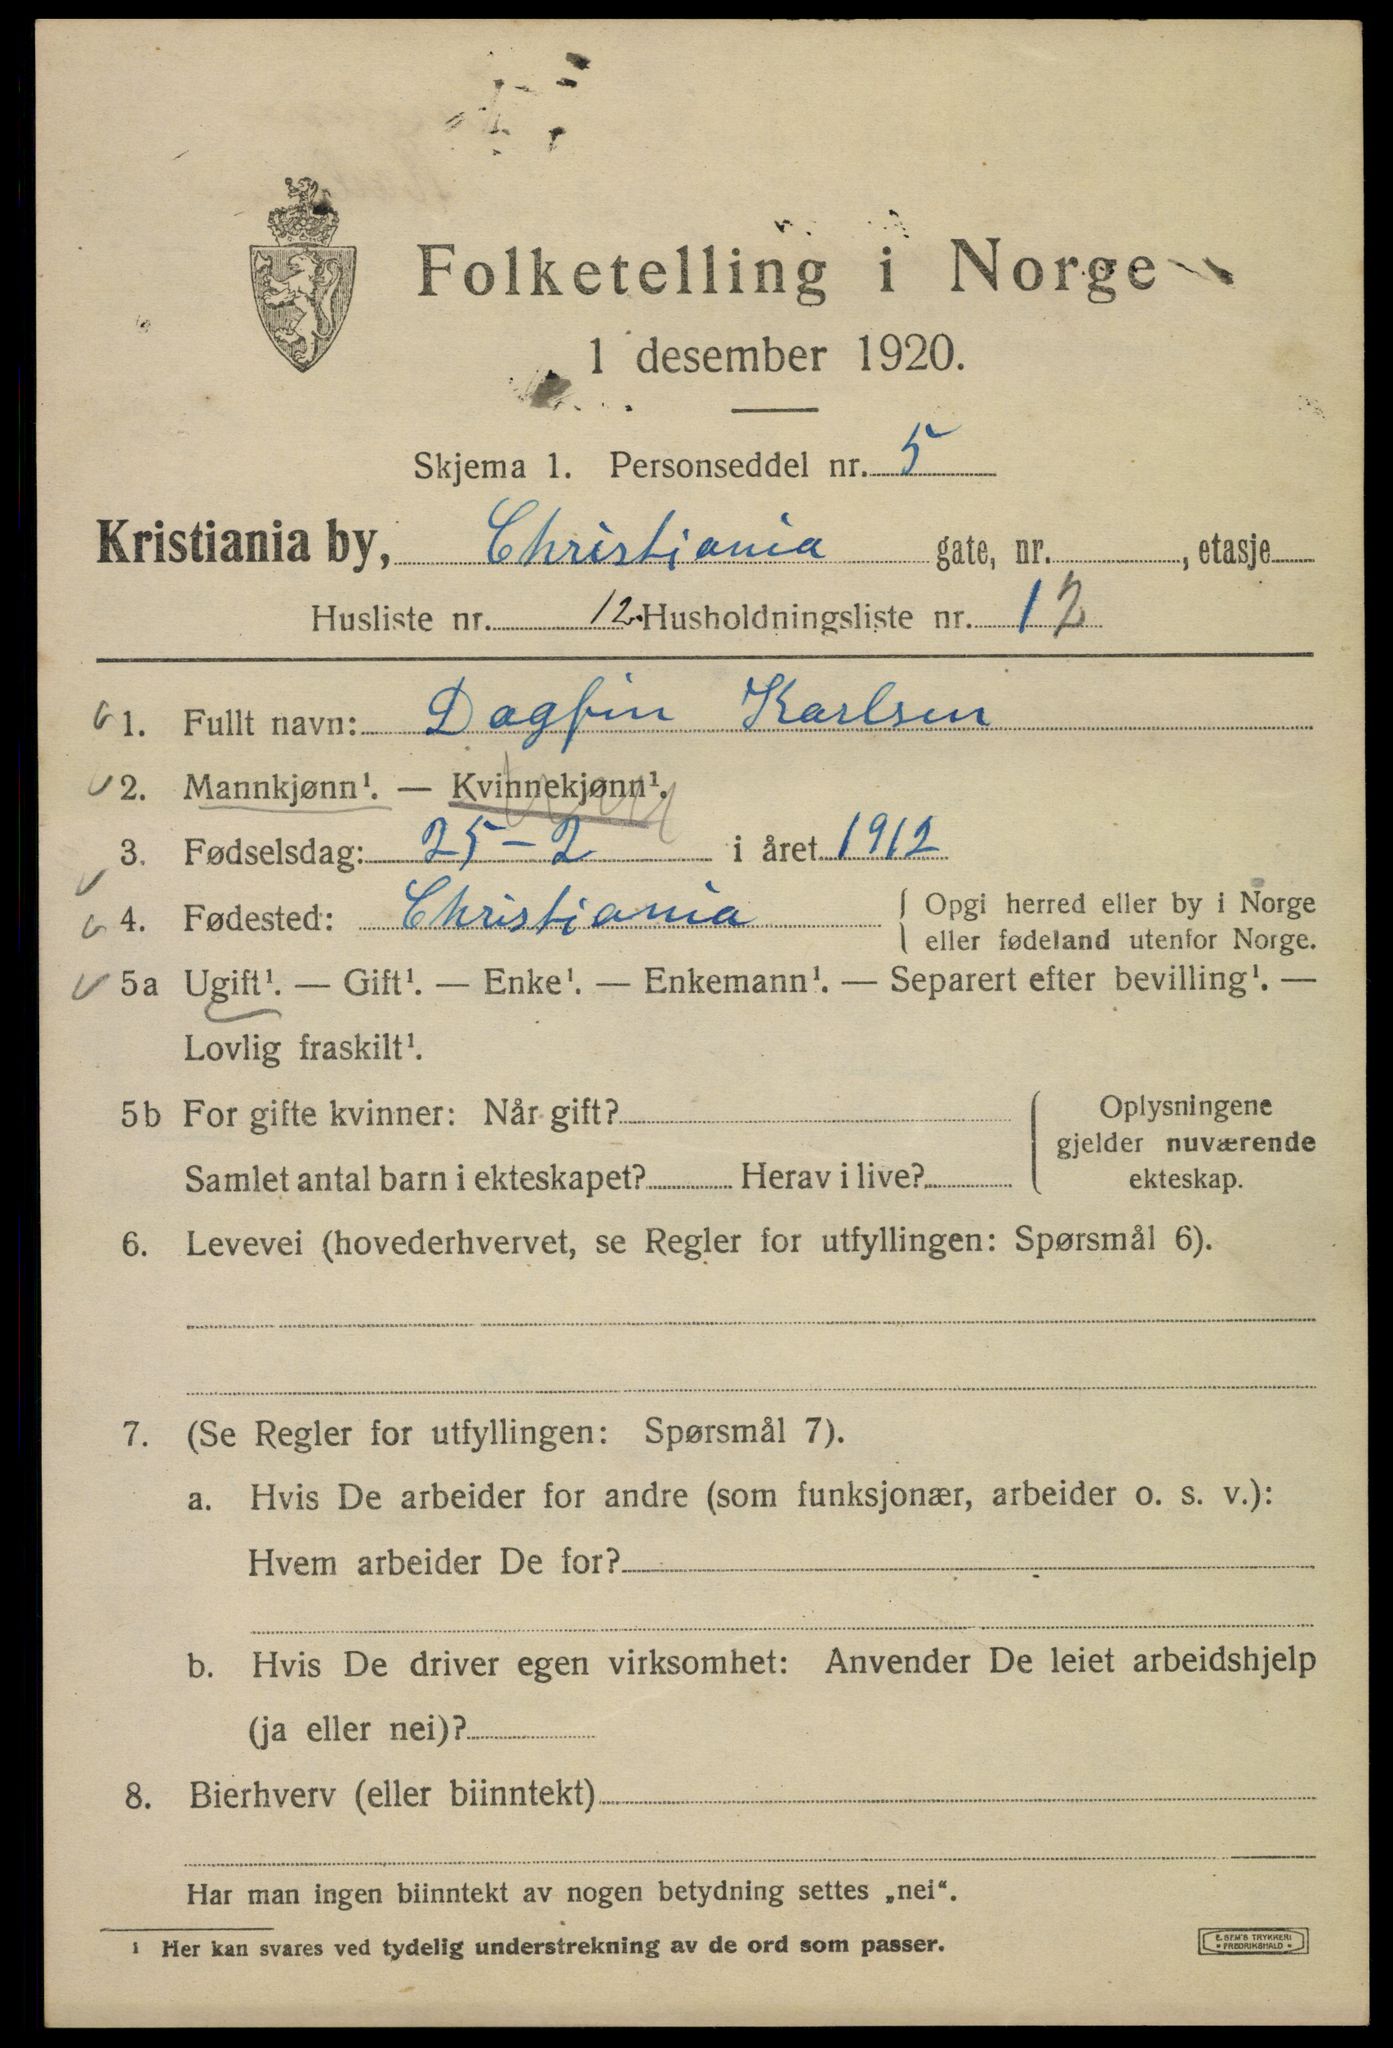 Folketelling i Norge
1 desember 1920.
Skjema 1. Personseddel nr. 5
Kristiania by, Christiania gate, nr. , etasje
Husliste nr. 12. Husholdningsliste nr. 12
1. Fullt navn: Dagfin Karlsen
2. Mannkjønn¹. — Kvinnekjønn¹.
3. Fødselsdag: 25-2 i året 1912
4. Fødested: Christiania { Opgi herred eller by i Norge
eller fødeland utenfor Norge.
5a Ugift¹. — Gift¹. — Enke¹. — Enkemann¹. — Separert efter bevilling¹. —
Lovlig fraskilt¹.
5b For gifte kvinner: Når gift?
Samlet antal barn i ekteskapet? Herav i live?
Oplysningene
gjelder nuværende
ekteskap.
6. Levevei (hovederhvervet, se Regler for utfyllingen: Spørsmål 6).
7. (Se Regler for utfyllingen: Spørsmål 7).
a. Hvis De arbeider for andre (som funksjonær, arbeider o. s. v.):
Hvem arbeider De for?
b. Hvis De driver egen virksomhet: Anvender De leiet arbeidshjelp
(ja eller nei)?
8. Bierhverv (eller biinntekt)
Har man ingen biinntekt av nogen betydning settes „nei“.
¹ Her kan svares ved tydelig understrekning av de ord som passer.
E. SEM'S TRYKKERI
FREDRIKSHALD